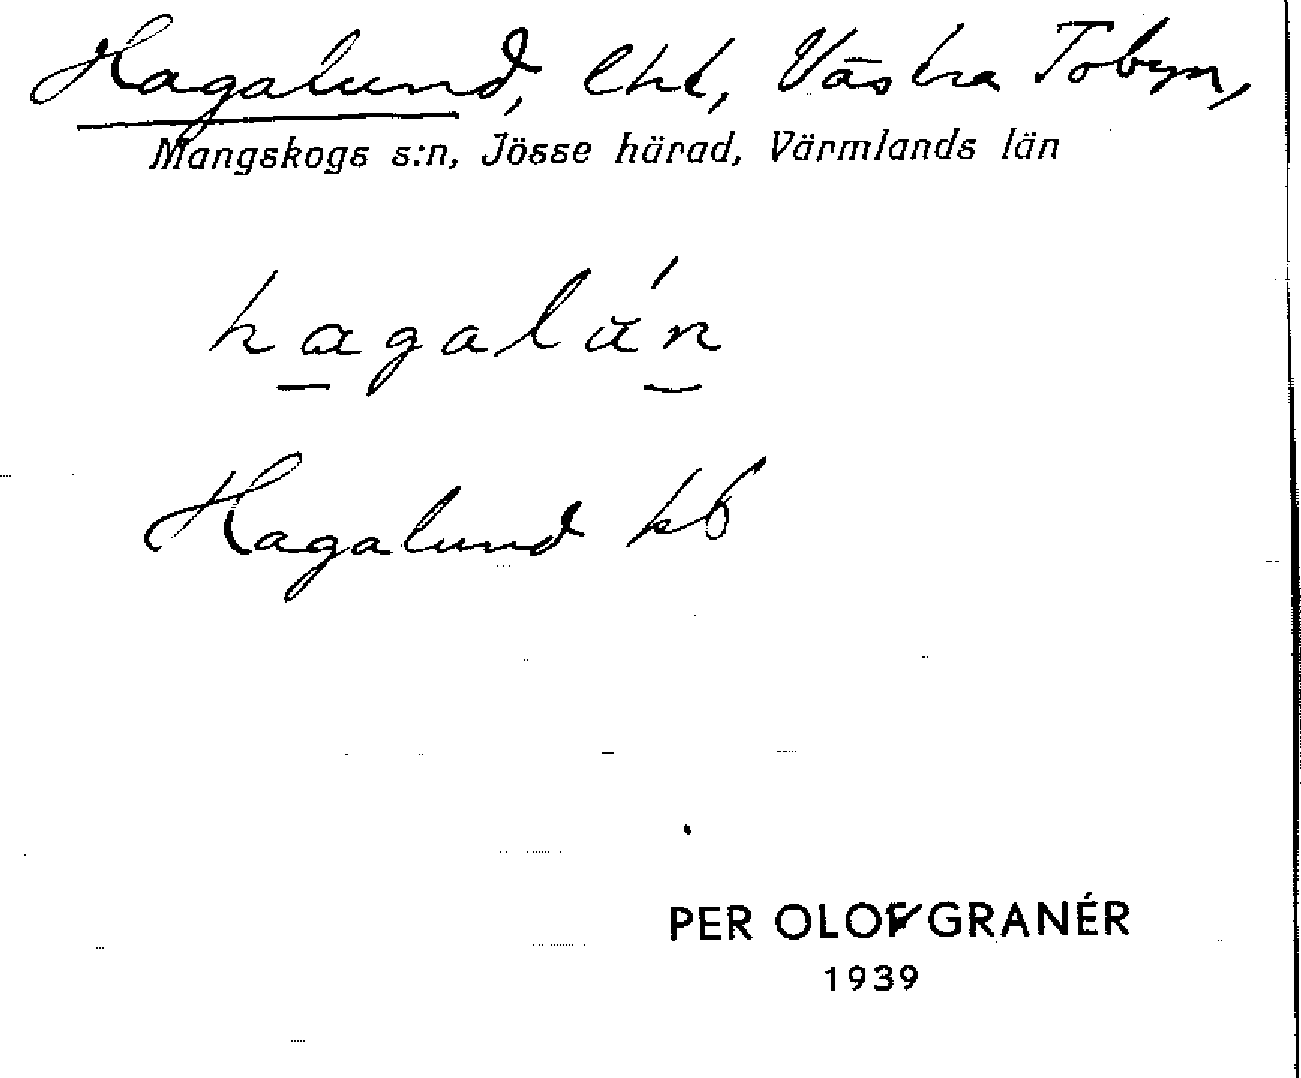 Hagalund, lht, Västra Tobyn,
Mangskogs s:n, Jösse härad, Värmlands län
hagalún
Hagalund kb
PER OLOF GRANÉR
1939